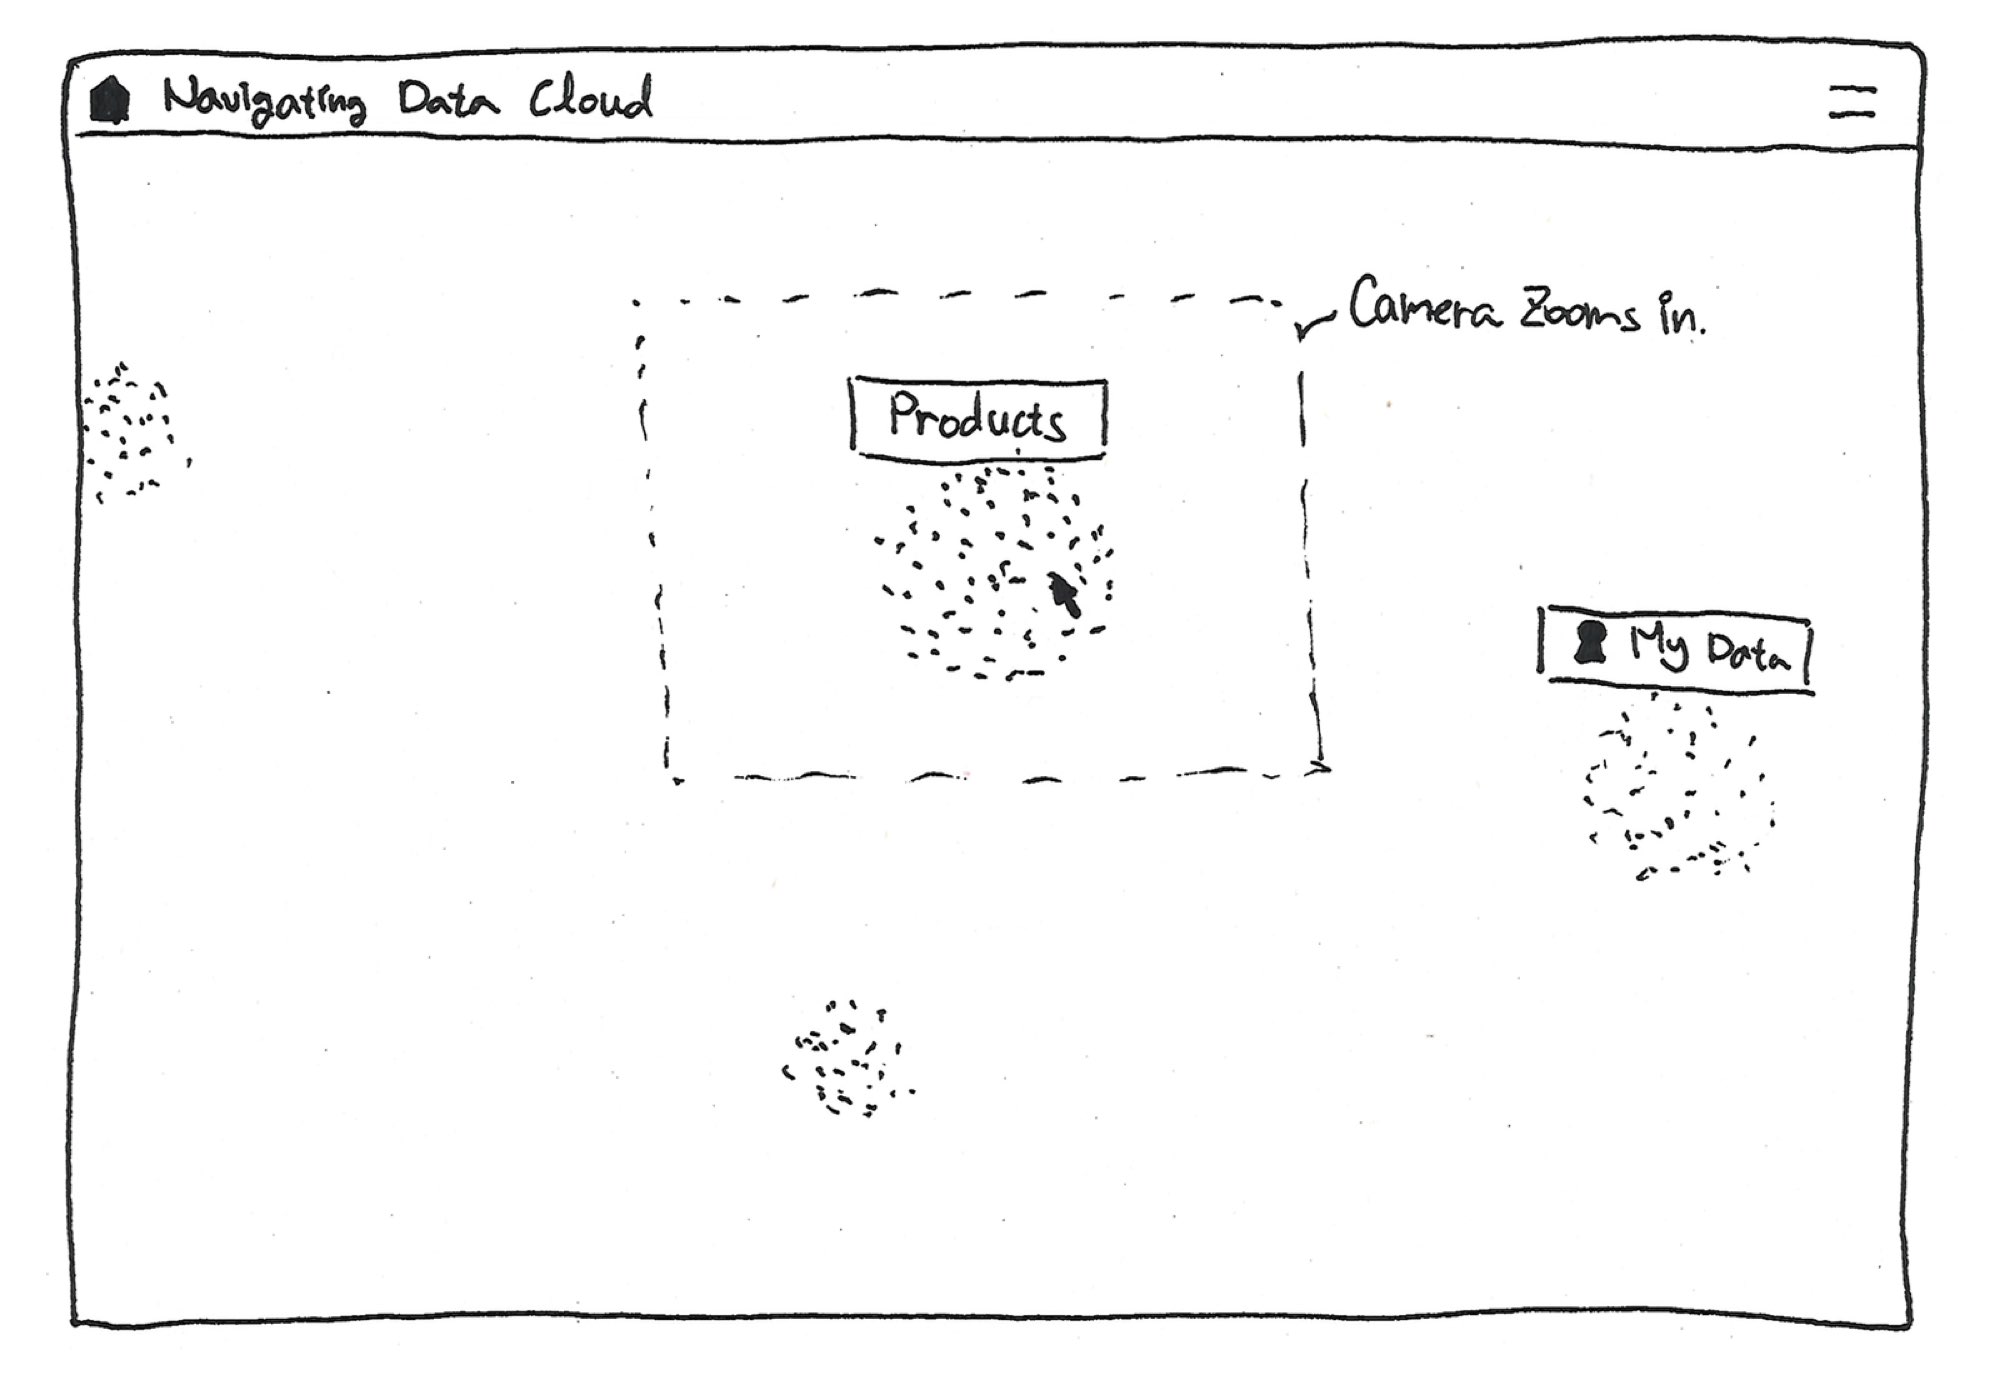 Navigating Data Cloud
Camera Zooms in.
Products
My Data